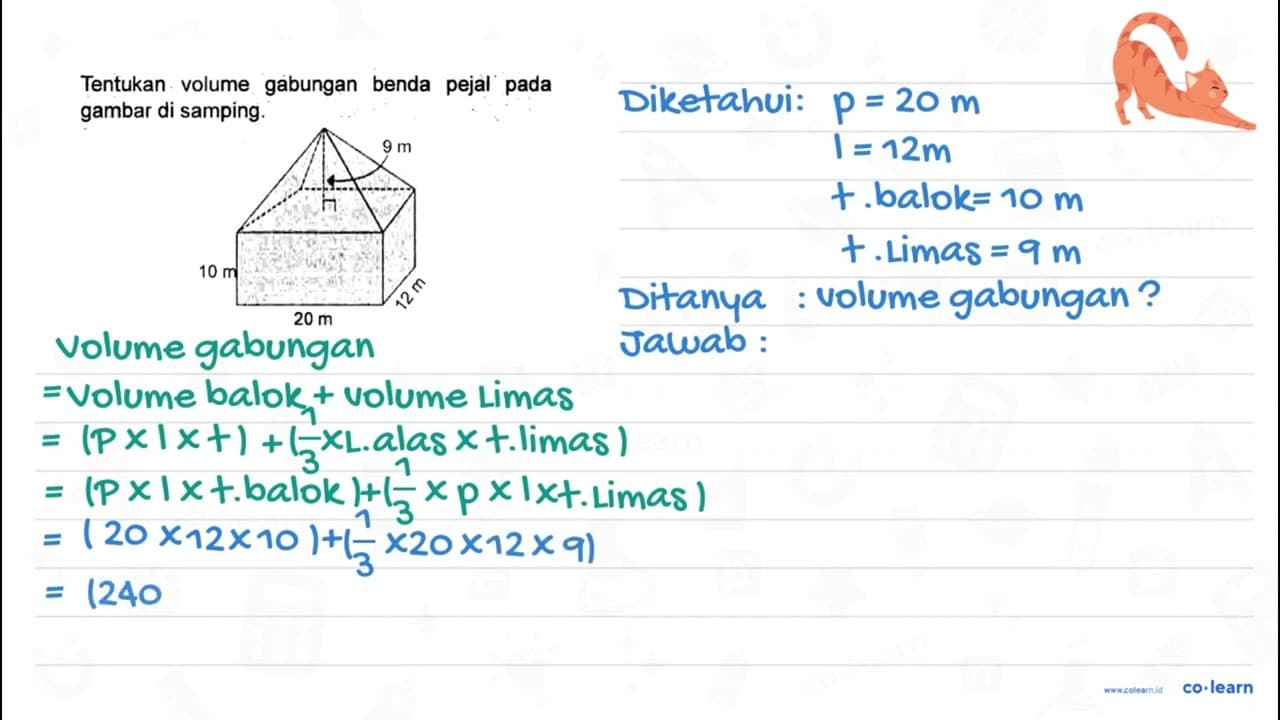 Tentukan volume gabungan benda pejal pada
gambar di samping.
9 m
10 m
12 m
20 m
Diketahui: p = 20 m
l = 12m
t.balok= 10 m
t.Limas = 9 m
Ditanya : volume gabungan ?
Jawab :
Volume gabungan
= Volume balok + volume Limas
= (P x l x t) + (1/3 x L.alas x t.limas)
= (P x l x t.balok)+(1/3 x p x l x t.Limas)
= (20 x 12 x 10)+(1/3 x 20 x 12 x 9)
= (240
www.colearn.id co·learn